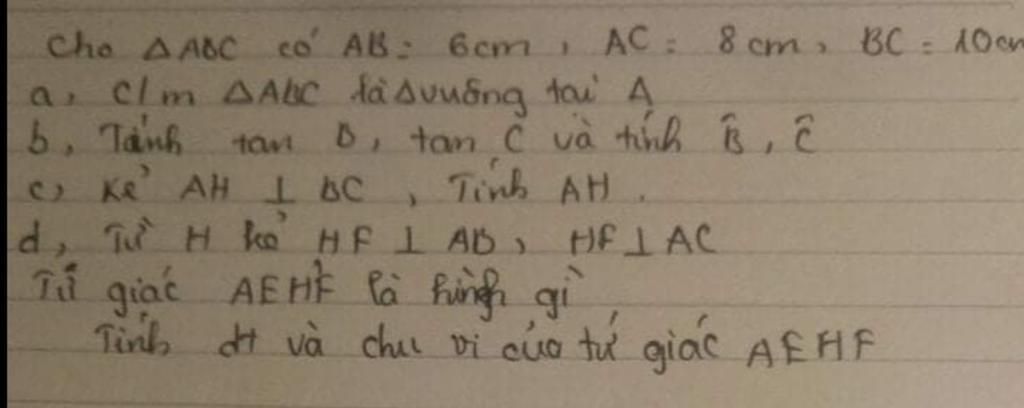 Cho ΔABC có AB = 6cm, AC = 8cm, BC = 10cm
a, C/m ΔABC là Δvuông tại A
b, Tính tan B, tan C và tính B̂, Ĉ
c, Kẻ AH ⊥ BC, Tính AH.
d, Từ H kẻ HF ⊥ AB, HF ⊥ AC
Tứ giác AEHF là hình gì
Tính dt và chu vi của tứ giác AEHF